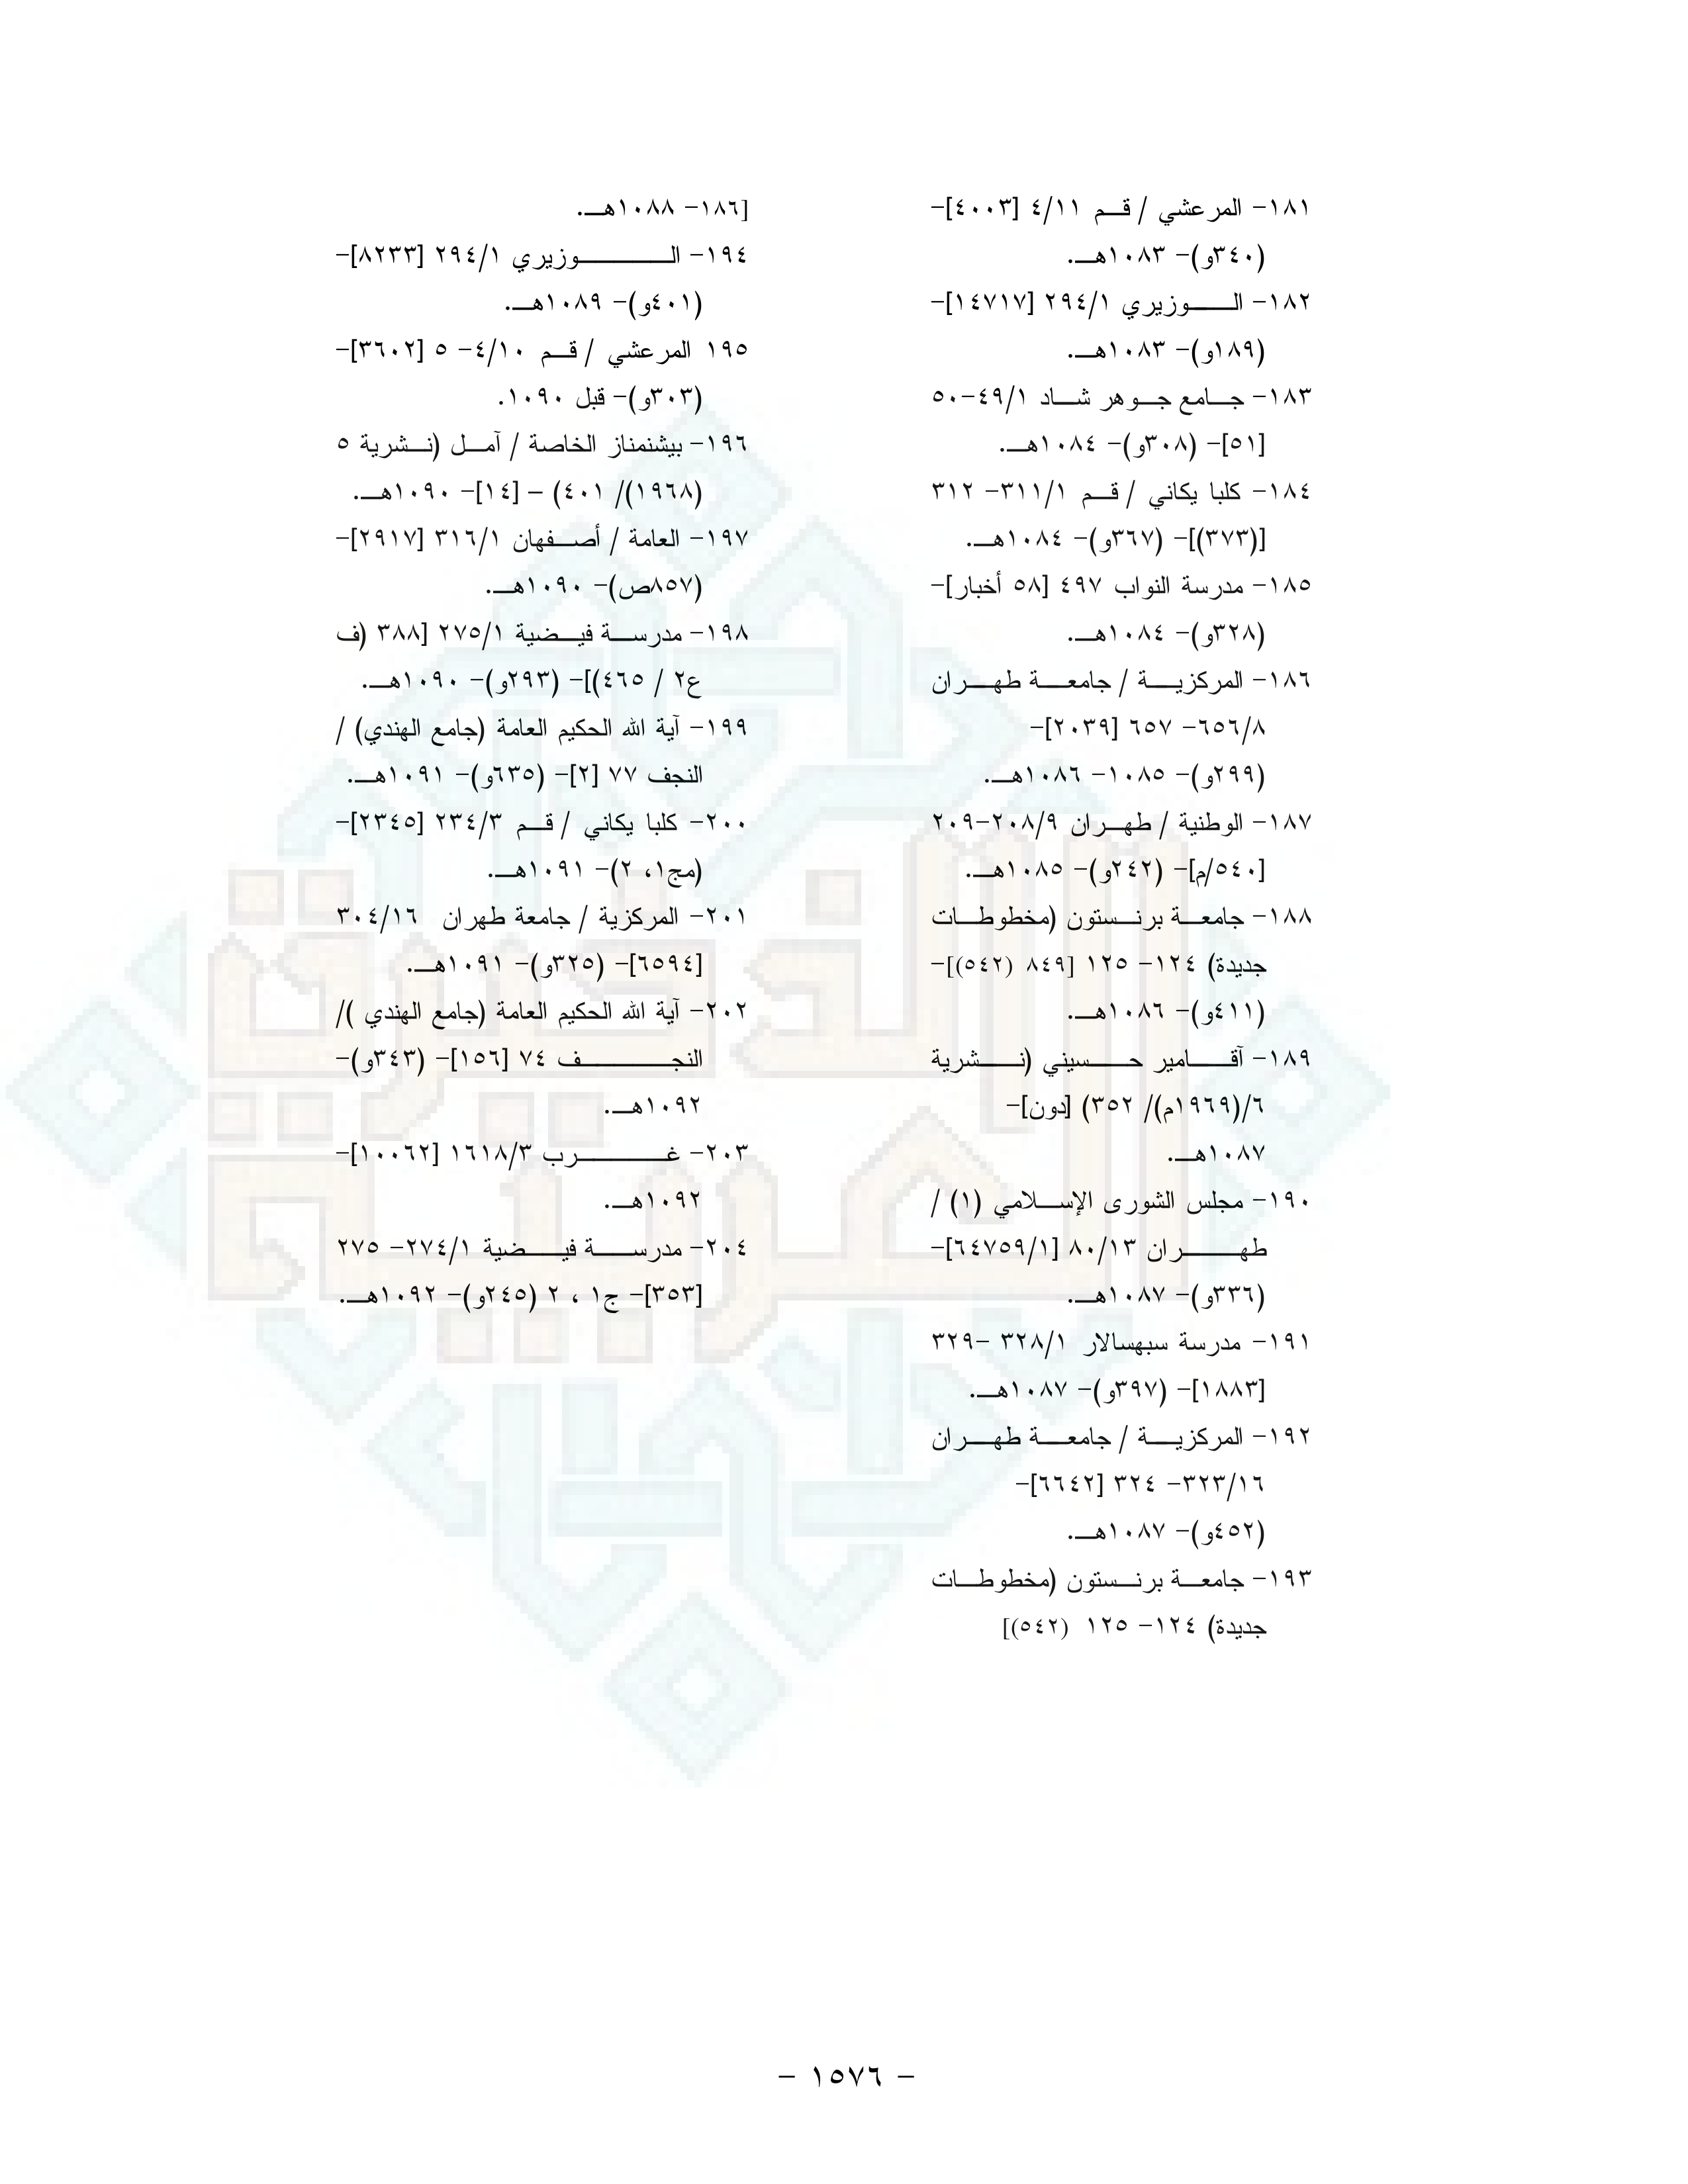 ١٨١- المرعشي / قم ٤/١١ [٤٠٠٣]-
(٣٤٠و)- ١٠٨٣هـ.
١٨٢- الوزيري ٢٩٤/١ [١٤٧١٧]-
(١٨٩و)- ١٠٨٣هـ.
١٨٣- جامع جوهر شاد ٤٩/١-٥٠
[٥١]- (٣٠٨و)- ١٠٨٤هـ.
١٨٤- كلبا يكاني / قم ٣١١/١- ٣١٢
[(٣٧٣)]- (٣٦٧و)- ١٠٨٤هـ.
١٨٥- مدرسة النواب ٤٩٧ [٥٨ أخبار]-
(٣٢٨و)- ١٠٨٤هـ.
١٨٦- المركزية / جامعة طهران
٦٥٦/٨- ٦٥٧ [٢٠٣٩]-
(٢٩٩و)- ١٠٨٥- ١٠٨٦هـ.
١٨٧- الوطنية / طهران ٢٠٨/٩-٢٠٩
[٥٤٠/م]- (٢٤٢و)- ١٠٨٥هـ.
١٨٨- جامعة برنستون (مخطوطات
جديدة) ١٢٤- ١٢٥ [٨٤٩ (٥٤٢)]-
(٤١١و)- ١٠٨٦هـ.
١٨٩- آقامير حسيني (نشرية
٦/(١٩٦٩م)/ ٣٥٢) [دون]-
١٠٨٧هـ.
١٩٠- مجلس الشورى الإسلامي (١) /
طهران ٨٠/١٣ [٦٤٧٥٩/١]-
(٣٣٦و)- ١٠٨٧هـ.
١٩١- مدرسة سبهسالار ٣٢٨/١ -٣٢٩
[١٨٨٣]- (٣٩٧و)- ١٠٨٧هـ.
١٩٢- المركزية / جامعة طهران
٣٢٣/١٦- ٣٢٤ [٦٦٤٢]-
(٤٥٢و)- ١٠٨٧هـ.
١٩٣- جامعة برنستون (مخطوطات
جديدة) ١٢٤- ١٢٥ (٥٤٢)]
[١٨٦- ١٠٨٨هـ.
١٩٤- الوزيري ٢٩٤/١ [٨٢٣٣]-
(٤٠١و)- ١٠٨٩هـ.
١٩٥ المرعشي / قم ٤/١٠- ٥ [٣٦٠٢]-
(٣٠٣و)- قبل ١٠٩٠.
١٩٦- بيشنمناز الخاصة / آمل (نشرية ٥
(١٩٦٨)/ ٤٠١) – [١٤]- ١٠٩٠هـ.
١٩٧- العامة / أصفهان ٣١٦/١ [٢٩١٧]-
(٨٥٧ص)- ١٠٩٠هـ.
١٩٨- مدرسة فيضية ٢٧٥/١ [٣٨٨ (ف
ع٢ / ٤٦٥)]- (٢٩٣و)- ١٠٩٠هـ.
١٩٩- آية الله الحكيم العامة (جامع الهندي) /
النجف ٧٧ [٢]- (٦٣٥و)- ١٠٩١هـ.
٢٠٠- كلبا يكاني / قم ٢٣٤/٣ [٢٣٤٥]-
(مج١، ٢)- ١٠٩١هـ.
٢٠١- المركزية / جامعة طهران ٣٠٤/١٦
[٦٥٩٤]- (٣٢٥و)- ١٠٩١هـ.
٢٠٢- آية الله الحكيم العامة (جامع الهندي )/
النجف ٧٤ [١٥٦]- (٣٤٣و)-
١٠٩٢هـ.
٢٠٣- غرب ١٦١٨/٣ [١٠٠٦٢]-
١٠٩٢هـ.
٢٠٤- مدرسة فيضية ٢٧٤/١- ٢٧٥
[٣٥٣]- ج١ ، ٢ (٢٤٥و)- ١٠٩٢هـ.
- ١٥٧٦ -